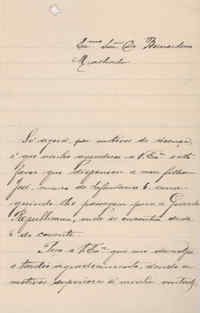 Ex.mo Sñr Dr. Bernardino
Machado
Só agora, por motivos de doença,
é que venho agradecer a V. Ex.ª o
favor que dispensou a meu filho
José, de Infantaria 6,
lhe passagem para a Guarda
Republicana, onde se encontra desde
6 do corrente.
a V. Ex.ª que me desculpe
a tardio agradecimento, devido a
motivos superiores á minha vontade,